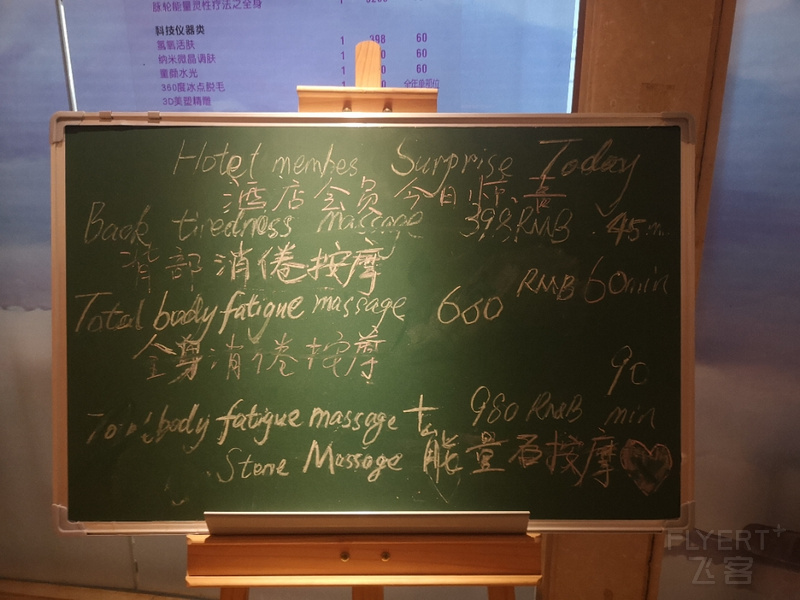 脉轮能量灵性疗法之全身 1
科技仪器类
氢氧活肤 1 398 60
纳米微晶调肤 1 60
童颜水光 1 60
360度冰点脱毛 1
3D美塑精雕 1
Hotel membes Surprise Today
酒店会员 今日惊喜
Back tiredness massage 398RMB 45min
背部消倦按摩
RMB 60min
Total body fatigue massage 600
全身消倦按摩
90
Total body fatigue massage + 980 RMB min
Stone Massage 能量石按摩
FLYERT+
飞客